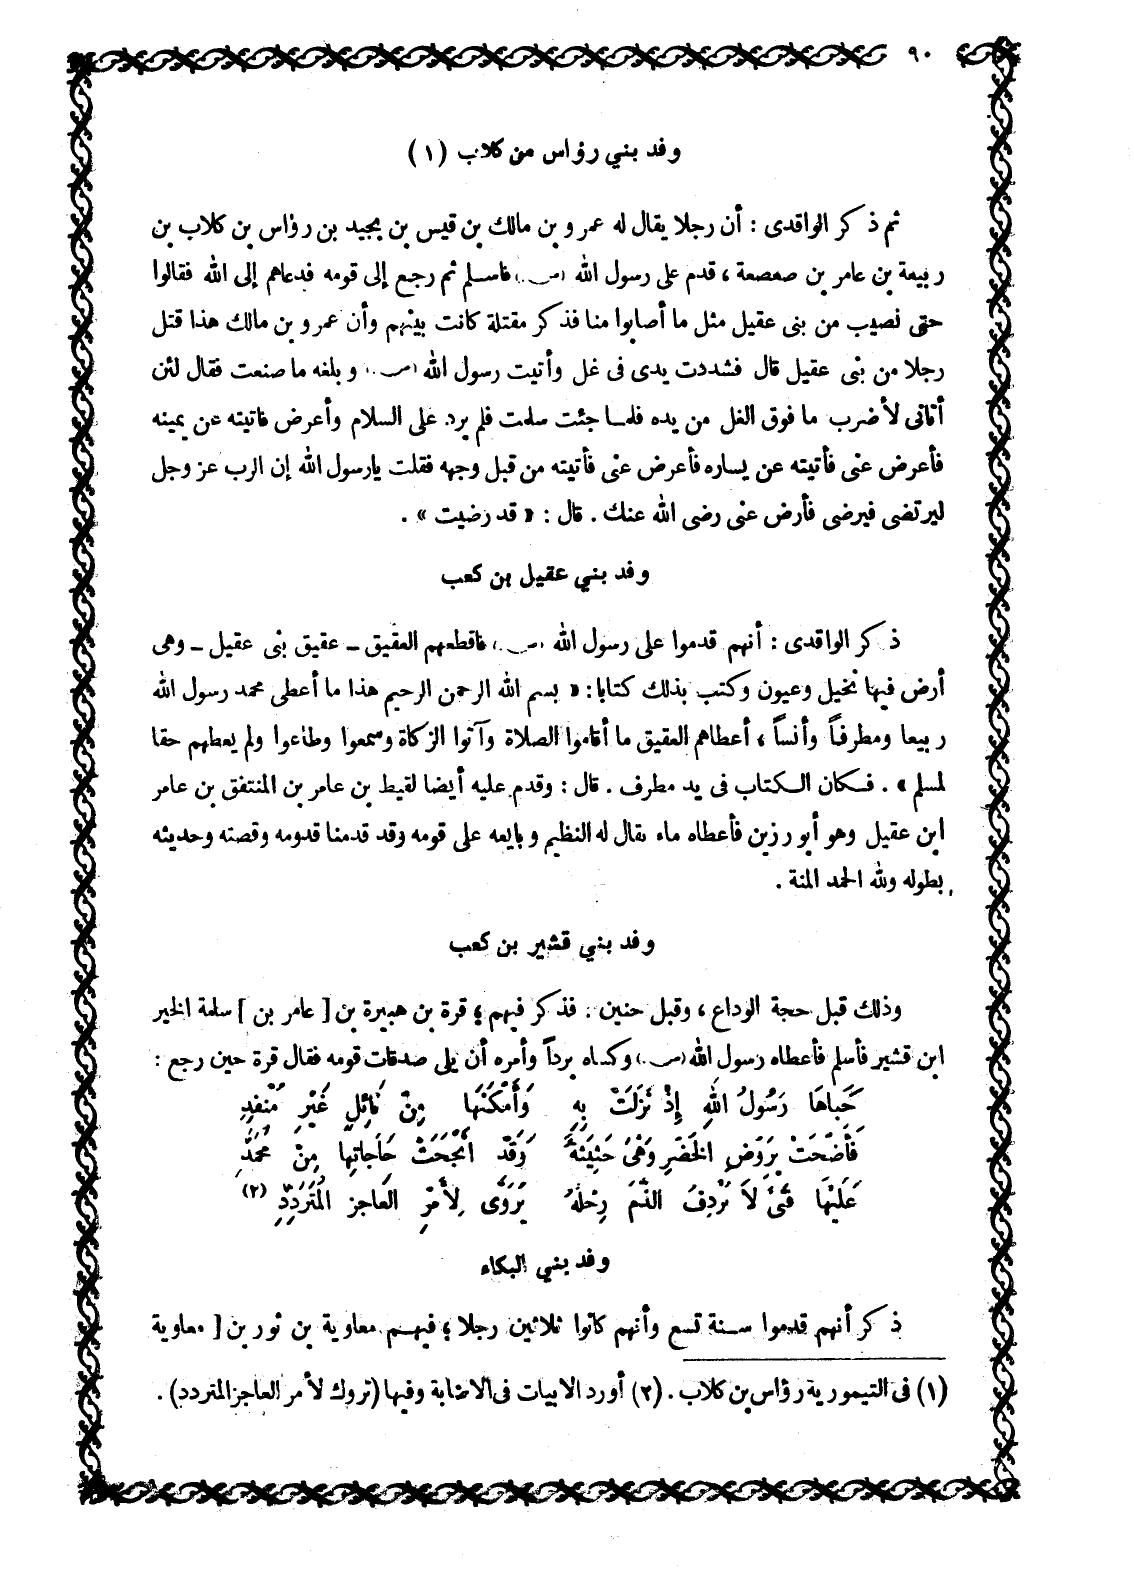 ٩٠
وفد بني رؤاس من كلاب (١)
ثم ذكر الواقدى : أن رجلا يقال له عمرو بن مالك بن قيس بن بجيد بن رؤاس بن كلاب بن
ربيعة بن عامر بن صعصعة ، قدم على رسول الله (ص) فاسلم ثم رجع إلى قومه فدعاهم إلى الله فقالوا
حتى نصيب من بنى عقيل مثل ما أصابوا منا فذكر مقتلة كانت بينهم وأن عمرو بن مالك هذا قتل
رجلا من بنى عقيل قال فشددت يدى فى غل وأتيت رسول الله (ص) وبلغه ما صنعت فقال لئن
أتانى لأضرب ما فوق الغل من يده فلما جئت سلمت فلم يرد على السلام وأعرض فاتيته عن يمينه
فأعرض عنى فأتيته عن يساره فأعرض عنى فأتيته من قبل وجهه فقلت يارسول الله إن الرب عز وجل
ليرتضى فيرضى فأرض عنى رضى الله عنك . قال : « قد رضيت » .
وفد بني عقيل بن كعب
ذكر الواقدى : أنهم قدموا على رسول الله (ص) فاقطعهم العقيق – عقيق بنى عقيل – وهى
أرض فيها نخيل وعيون وكتب بذلك كتابا : « بسم الله الرحمن الرحيم هذا ما أعطى محمد رسول الله
ربيعا ومطرفاً وأنساً ، أعطاهم العقيق ما أقاموا الصلاة وآتوا الزكاة وسمعوا وطاعوا ولم يعطهم حقا
لمسلم » . فكان الكتاب فى يد مطرف . قال : وقدم عليه أيضا لقيط بن عامر بن المنتفق بن عامر
ابن عقيل وهو أبو رزين فأعطاه ماء يقال له النظيم وبايعه على قومه وقد قدمنا قدومه وقصته وحديثه
بطوله ولله الحمد المنة .
وفد بني قشير بن كعب
وذلك قبل حجة الوداع ، وقبل حنين . فذكر فيهم ؛ قرة بن هبيرة بن [ عامر بن ] سلمة الخير
ابن قشير فأسلم فأعطاه رسول الله (ص) وكساه برداً وأمره أن يلى صدقات قومه فقال قرة حين رجع :
حَبَاهَا رَسُولُ اللهِ إِذْ نَزَلَتْ بِهِ وَأَمْكَنَهَا مِنْ نَائِلٍ غَيْرِ مُنْفِدِ
فَأَضْحَتْ بِرَوْضِ الخَضْرِ وَهْىَ حَثِيثَةٌ وَقَدْ أَنْجَحَتْ حَاجَاتِها مِنْ مُحَمَّدِ
عَلَيْهَا فَتًى لاَ يُرْدِفُ الذَّمَ رِحْلَهُ يَرَوَّى لِأَمْرِ العَاجِزِ المُتَرَدِّدِ (٢)
وفد بني البكاء
ذكر أنهم قدموا سنة تسع وأنهم كانوا ثلاثين رجلا ؛ فيهم معاوية بن ثور بن [ معاوية
(١) فى التيمورية رؤاس بن كلاب . (٢) أورد الابيات فى الاصابة وفيها (تروك لأمر العاجز المتردد) .